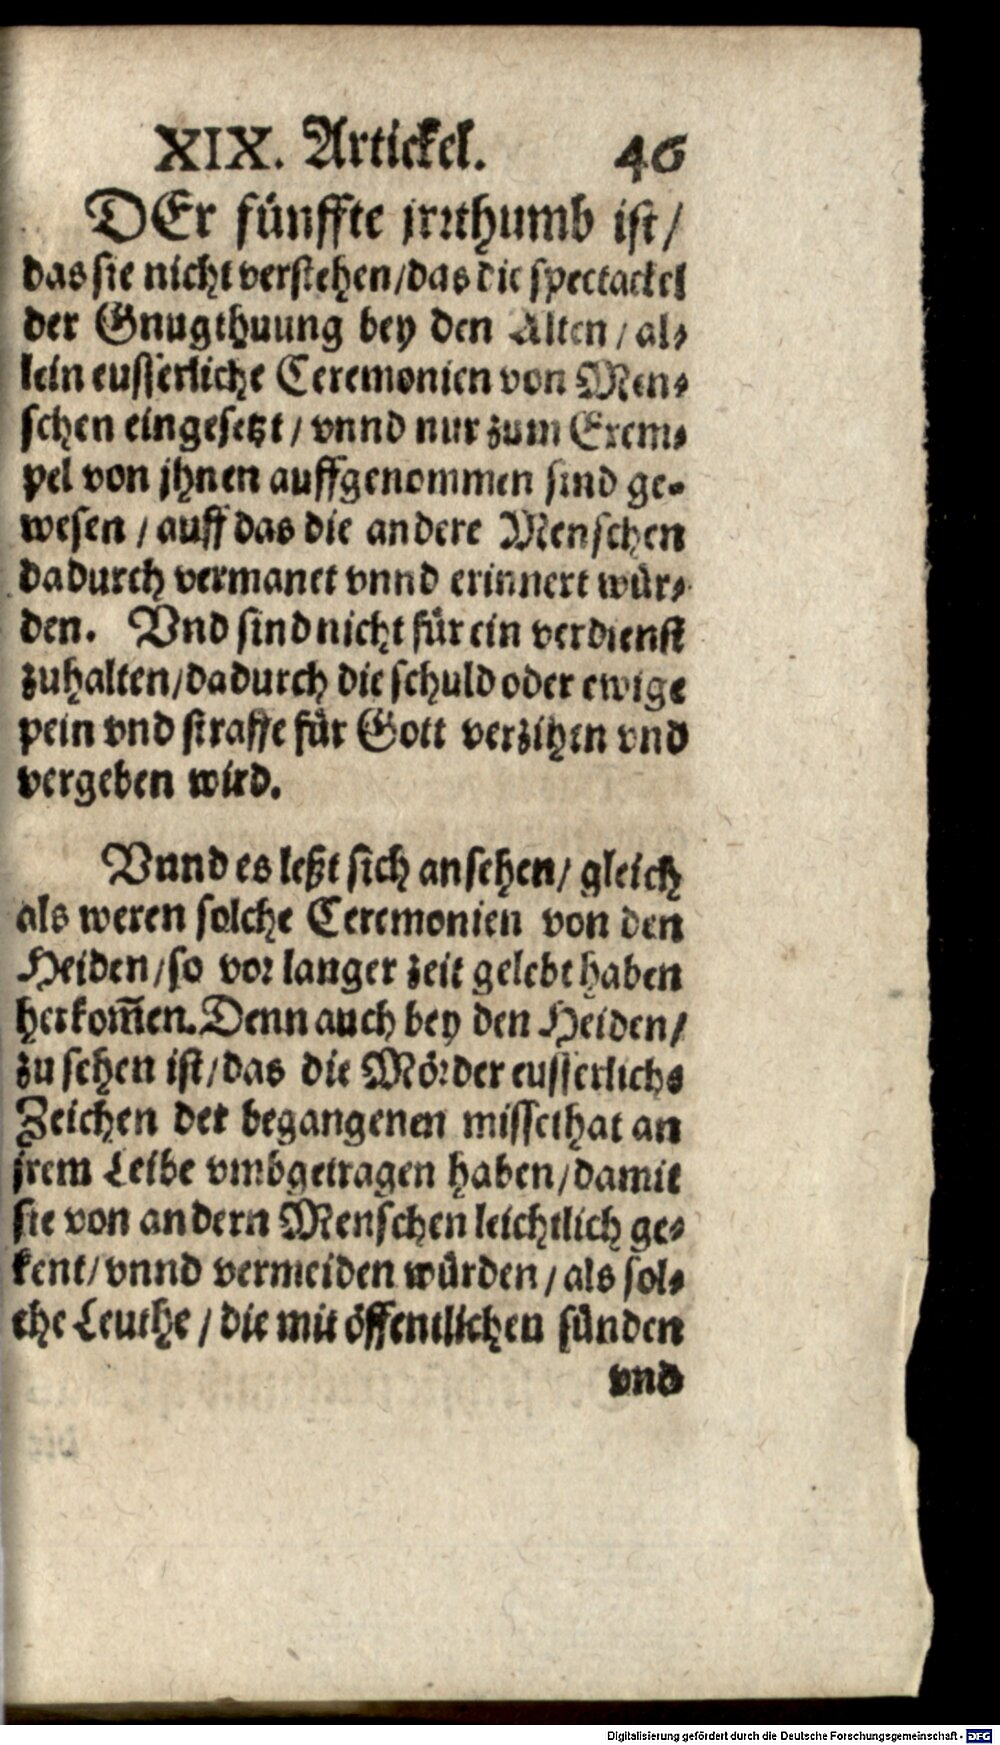 XIX. Artickel. 46
DEr fünffte jrrthumb ist/
das sie nicht verstehen/das die spectackel
der Gnugthuung bey den Alten/al⸗
lein eusserliche Ceremonien von Men⸗
schen eingesetzt/vnnd nur zum Exem⸗
pel von jhnen auffgenommen sind ge⸗
wesen/auff das die andere Menschen
dadurch vermanet vnnd erinnert wür⸗
den. Vnd sind nicht für ein verdienst
zuhalten/dadurch die schuld oder ewige
pein vnd straffe für Gott verzihen vnd
vergeben wird.
Vnnd es leßt sich ansehen/gleich
als weren solche Ceremonien von den
Heiden/so vor langer zeit gelebt haben
herkom̃en. Denn auch bey den Heiden/
zu sehen ist/das die Mörder eusserliche
Zeichen der begangenen missethat an
jrem Leibe vmbgetragen haben/damit
sie von andern Menschen leichtlich ge⸗
kent/vnnd vermeiden würden/als sol⸗
che Leuthe/die mit öffentlichen sünden
vnd
Digitalisierung gefördert durch die Deutsche Forschungsgemeinschaft - DFG